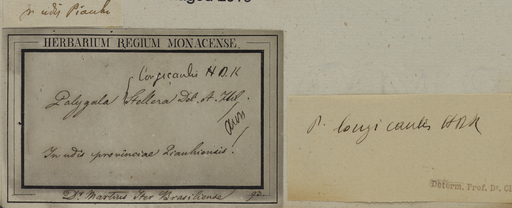 in udis Piauhi
HERBARIUM REGIUM MONACENSE.
longicaulis HBK
Polygala Stellera DC. A. Hil.
In udis provinciae Piauhiensis!
Dr. Martius Iter Brasiliense
P. longicaulis HBK
Determ. Prof. Dr. C